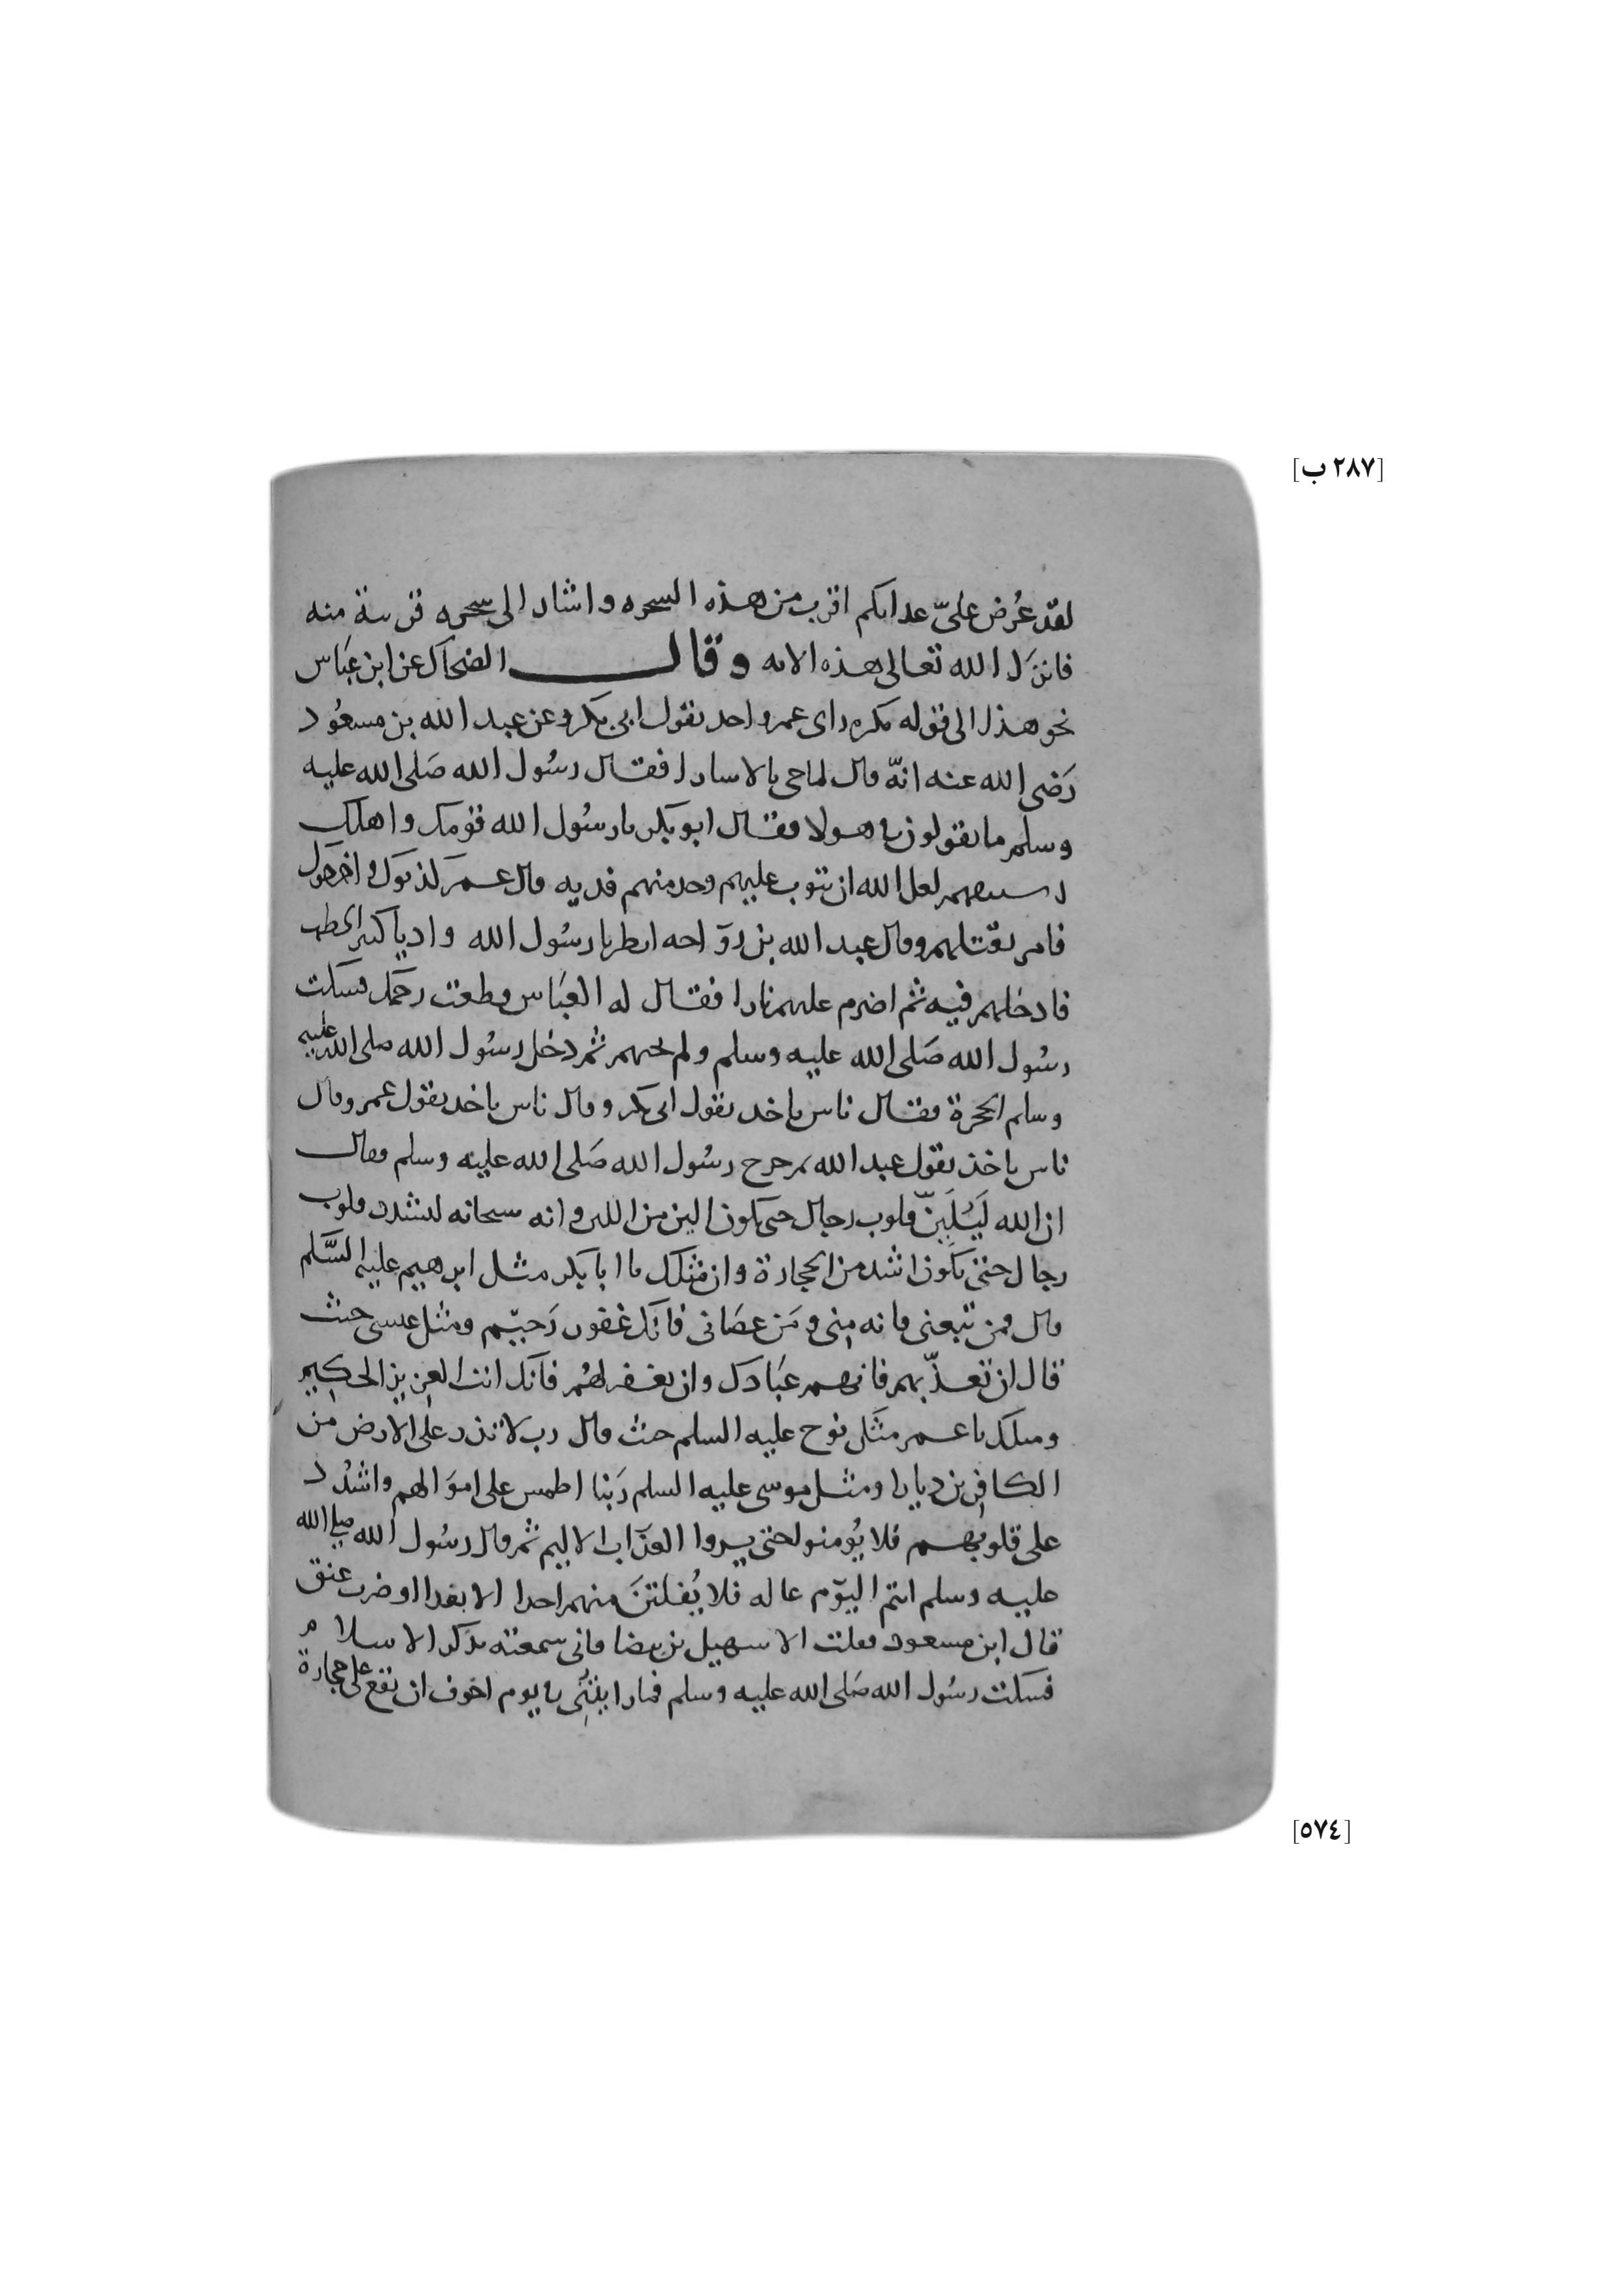 [٢٨٧ ب]
لقد عُرض عليّ عدابكم اقرب من هذه السجره واشار الى سجره قريبة منه
فانزَل الله تعالى هذه الايه وقال الضحاك عن ابن عَباس
نحو هذا الى قوله فكره راى عمر واخد بقول ابى بكر وعن عبد الله بن مسعُود
رَضى الله عنه انهّ قال لما جى بالاسارا فقال رسُول الله صَلى الله عليه
وسلم ما تقولون فى هولا فقال ابو بكر يا رسُول الله قومك واهلك
لعل الله ان يتوب عليهم وخد منهم فديه قال عمَر كذبوك واخرجوك
فامر بقتلهم وقال عبد الله بن رواحه انظر يا رسُول الله واديا كثير الحطب
فادخلهم فيه ثم اضرم عليهم نارا فقال له العبَاس قطعت رحمك فسكت
رسُول الله صَلى الله عليه وسلم ولم يجبهم ثم دخل رسُول الله صلى الله عليه
وسلم الحجرة فقال ناس ياخد بقول ابى بكر وقال ناس ياخد بقول عمر وقال
ناس ياخذ بقول عبد الله ثم خرج رسُول الله صَلى الله عليه وسلم فقال
ان الله لَيُلَيِّنّ قلوب رجال حتى تكون الين من اللبن وانه سبحانه ليشدد قلوب
رجال حتى تكون اشد من الحجارة وان مثلك يا ابا بكر مثل ابرهيم عليه السَّلم
قال فمن تبعنى فانه مِنى ومَن عصَانى فانَك غفور رَحيّم ومثل عيسى حيث
قال ان تعذّبهم فانهم عبَادك وان تغفر لهُم فانَك انت العزيز الحكيم
ومثلك يا عمر مثَل نوح عليه السلم حيث قال رب لا تذر على الارض من
الكافرين ديارا ومثل موسى عليه السلم رَبنا اطمس على اموَالهم واشدُد
على قلوبهم فلا يُومنوا حتى يروا العذَاب الاليم ثم قال رسُول الله صلى الله
عليه وسلم انتم اليوَم عاله فلا يُفلتنَ منهم احدا الا بفدا او ضرب عنق
قال ابن مسعود فقلت الا سهيل بن بيضا فانى سمعته يذكر الاسلام
فسكت رسُول الله صَلى الله عليه وسلم فما رايتُنِى فى يوم اخوف ان تقع على حجارة
[٥٧٤]